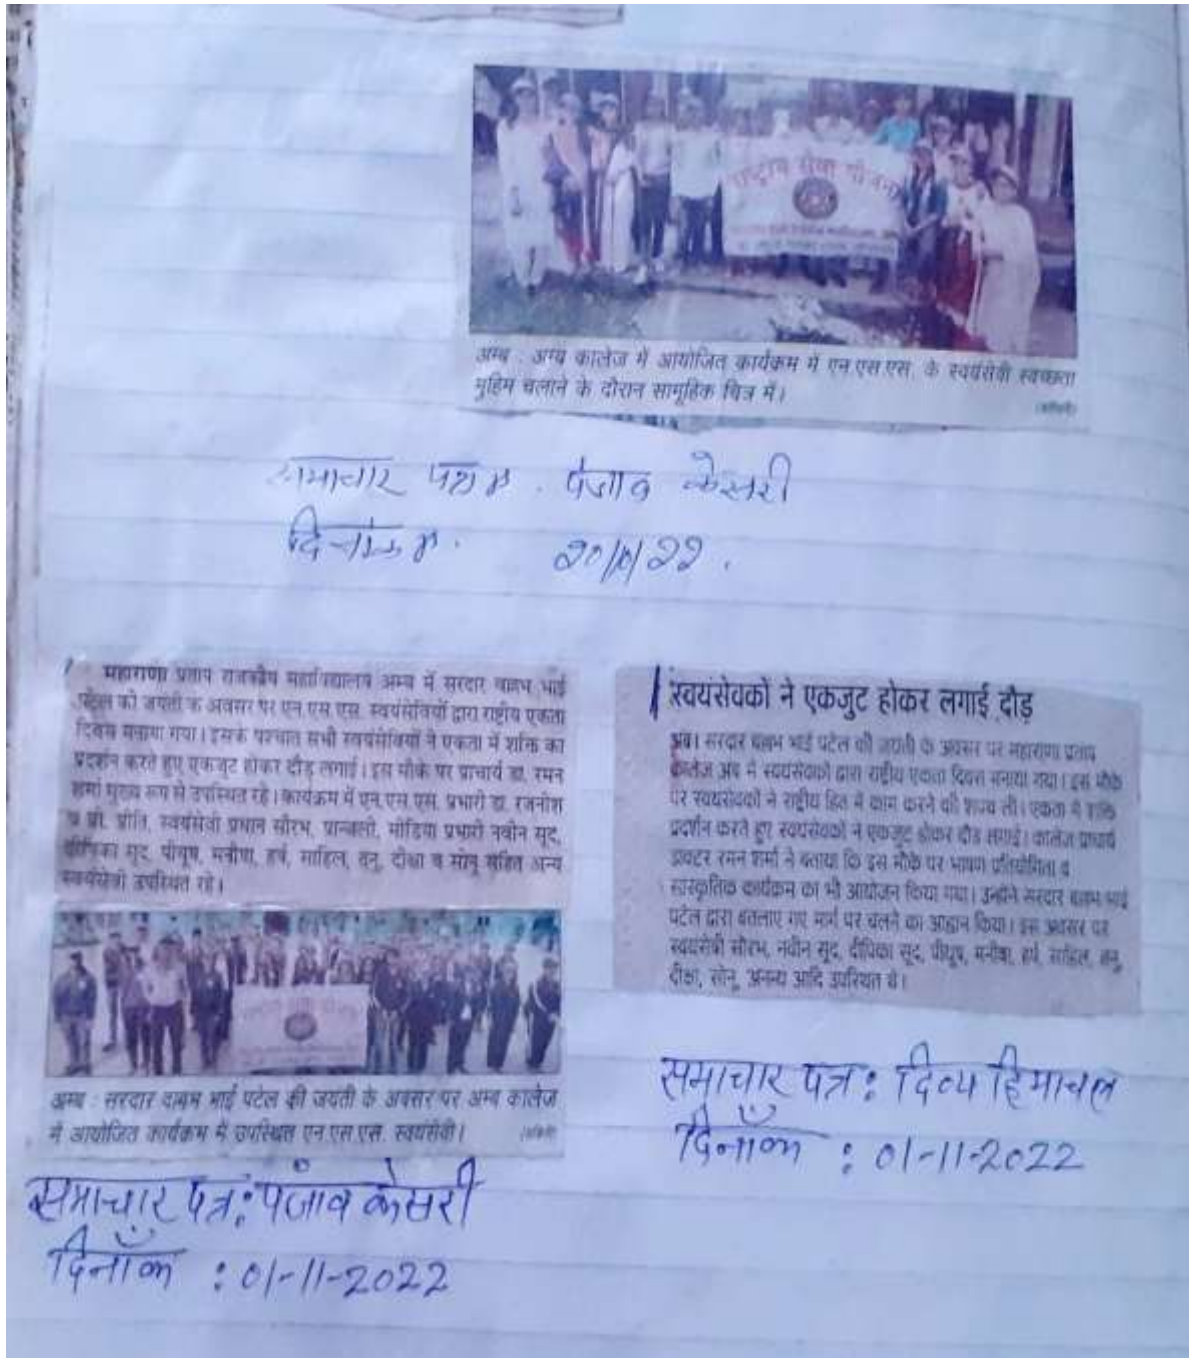 राष्ट्रीय सेवा योजना
अम्ब : अम्ब कालेज में आयोजित कार्यक्रम में एन.एस.एस. के स्वयंसेवी स्वच्छता
मुहिम चलाने के दौरान सामूहिक चित्र में।
समाचार पत्र पंजाब केसरी
दिनांक 20/10/22.
महाराणा प्रताप राजकीय महाविद्यालय अम्ब में सरदार वल्लभ भाई
पटेल की जयंती के अवसर पर एन.एस.एस. स्वयंसेवियों द्वारा राष्ट्रीय एकता
दिवस मनाया गया। इसके पश्चात सभी स्वयंसेवियों ने एकता में शक्ति का
प्रदर्शन करते हुए एकजुट होकर दौड़ लगाई। इस मौके पर प्राचार्य डा. रमन
शर्मा मुख्य रूप से उपस्थित रहे। कार्यक्रम में एन.एस.एस. प्रभारी डा. रजनीश
व प्रो. प्रीति, स्वयंसेवी प्रधान सौरभ, प्रान्जली, मीडिया प्रभारी नवीन सूद,
दीपिका सूद, पीयूष, मनीषा, हर्ष, साहिल, तनु, दीक्षा व सोनू सहित अन्य
स्वयंसेवी उपस्थित रहे।
अम्ब : सरदार वल्लभ भाई पटेल की जयंती के अवसर पर अम्ब कालेज
में आयोजित कार्यक्रम में उपस्थित एन.एस.एस. स्वयंसेवी।
समाचार पत्र : पंजाब केसरी
दिनाँक : 01-11-2022
स्वयंसेवकों ने एकजुट होकर लगाई दौड़
अंब। सरदार वल्लभ भाई पटेल की जयंती के अवसर पर महाराणा प्रताप
कॉलेज अंब में स्वयंसेवकों द्वारा राष्ट्रीय एकता दिवस मनाया गया। इस मौके
पर स्वयंसेवकों ने राष्ट्रीय हित में काम करने की शपथ ली। एकता में शक्ति
प्रदर्शन करते हुए स्वयंसेवकों ने एकजुट होकर दौड़ लगाई। कालेज प्राचार्य
डाक्टर रमन शर्मा ने बताया कि इस मौके पर भाषण प्रतियोगिता व
सांस्कृतिक कार्यक्रम का भी आयोजन किया गया। उन्होंने सरदार वल्लभ भाई
पटेल द्वारा बतलाए गए मार्ग पर चलने का आह्वान किया। इस अवसर पर
स्वयंसेवी सौरभ, नवीन सूद, दीपिका सूद, पीयूष, मनीषा, हर्ष, साहिल, तनु,
दीक्षा, सोनू, अनन्य आदि उपस्थित थे।
समाचार पत्र : दिव्य हिमाचल
दिनाँक : 01-11-2022